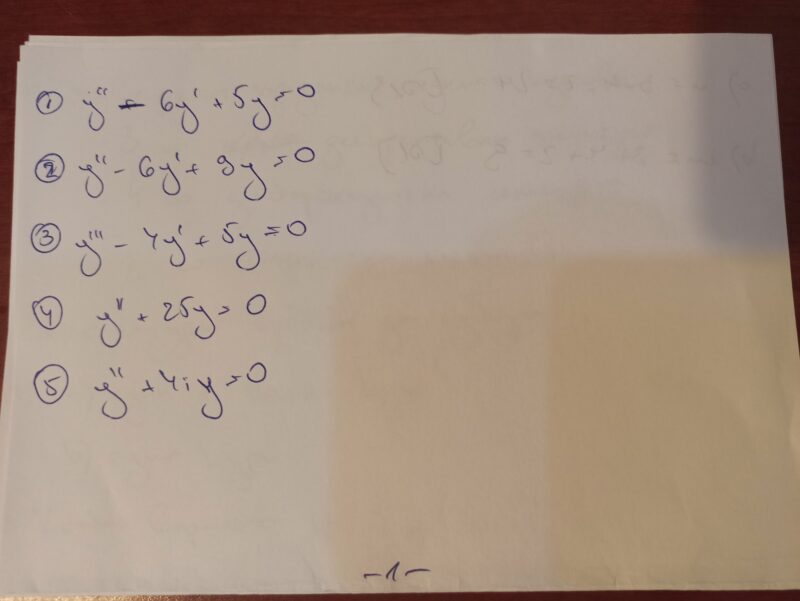 ① y'' - 6y' + 5y = 0
② y'' - 6y' + 9y = 0
③ y''' - 4y' + 5y = 0
④ y'' + 25y = 0
⑤ y'' + 4iy = 0
- 1 -